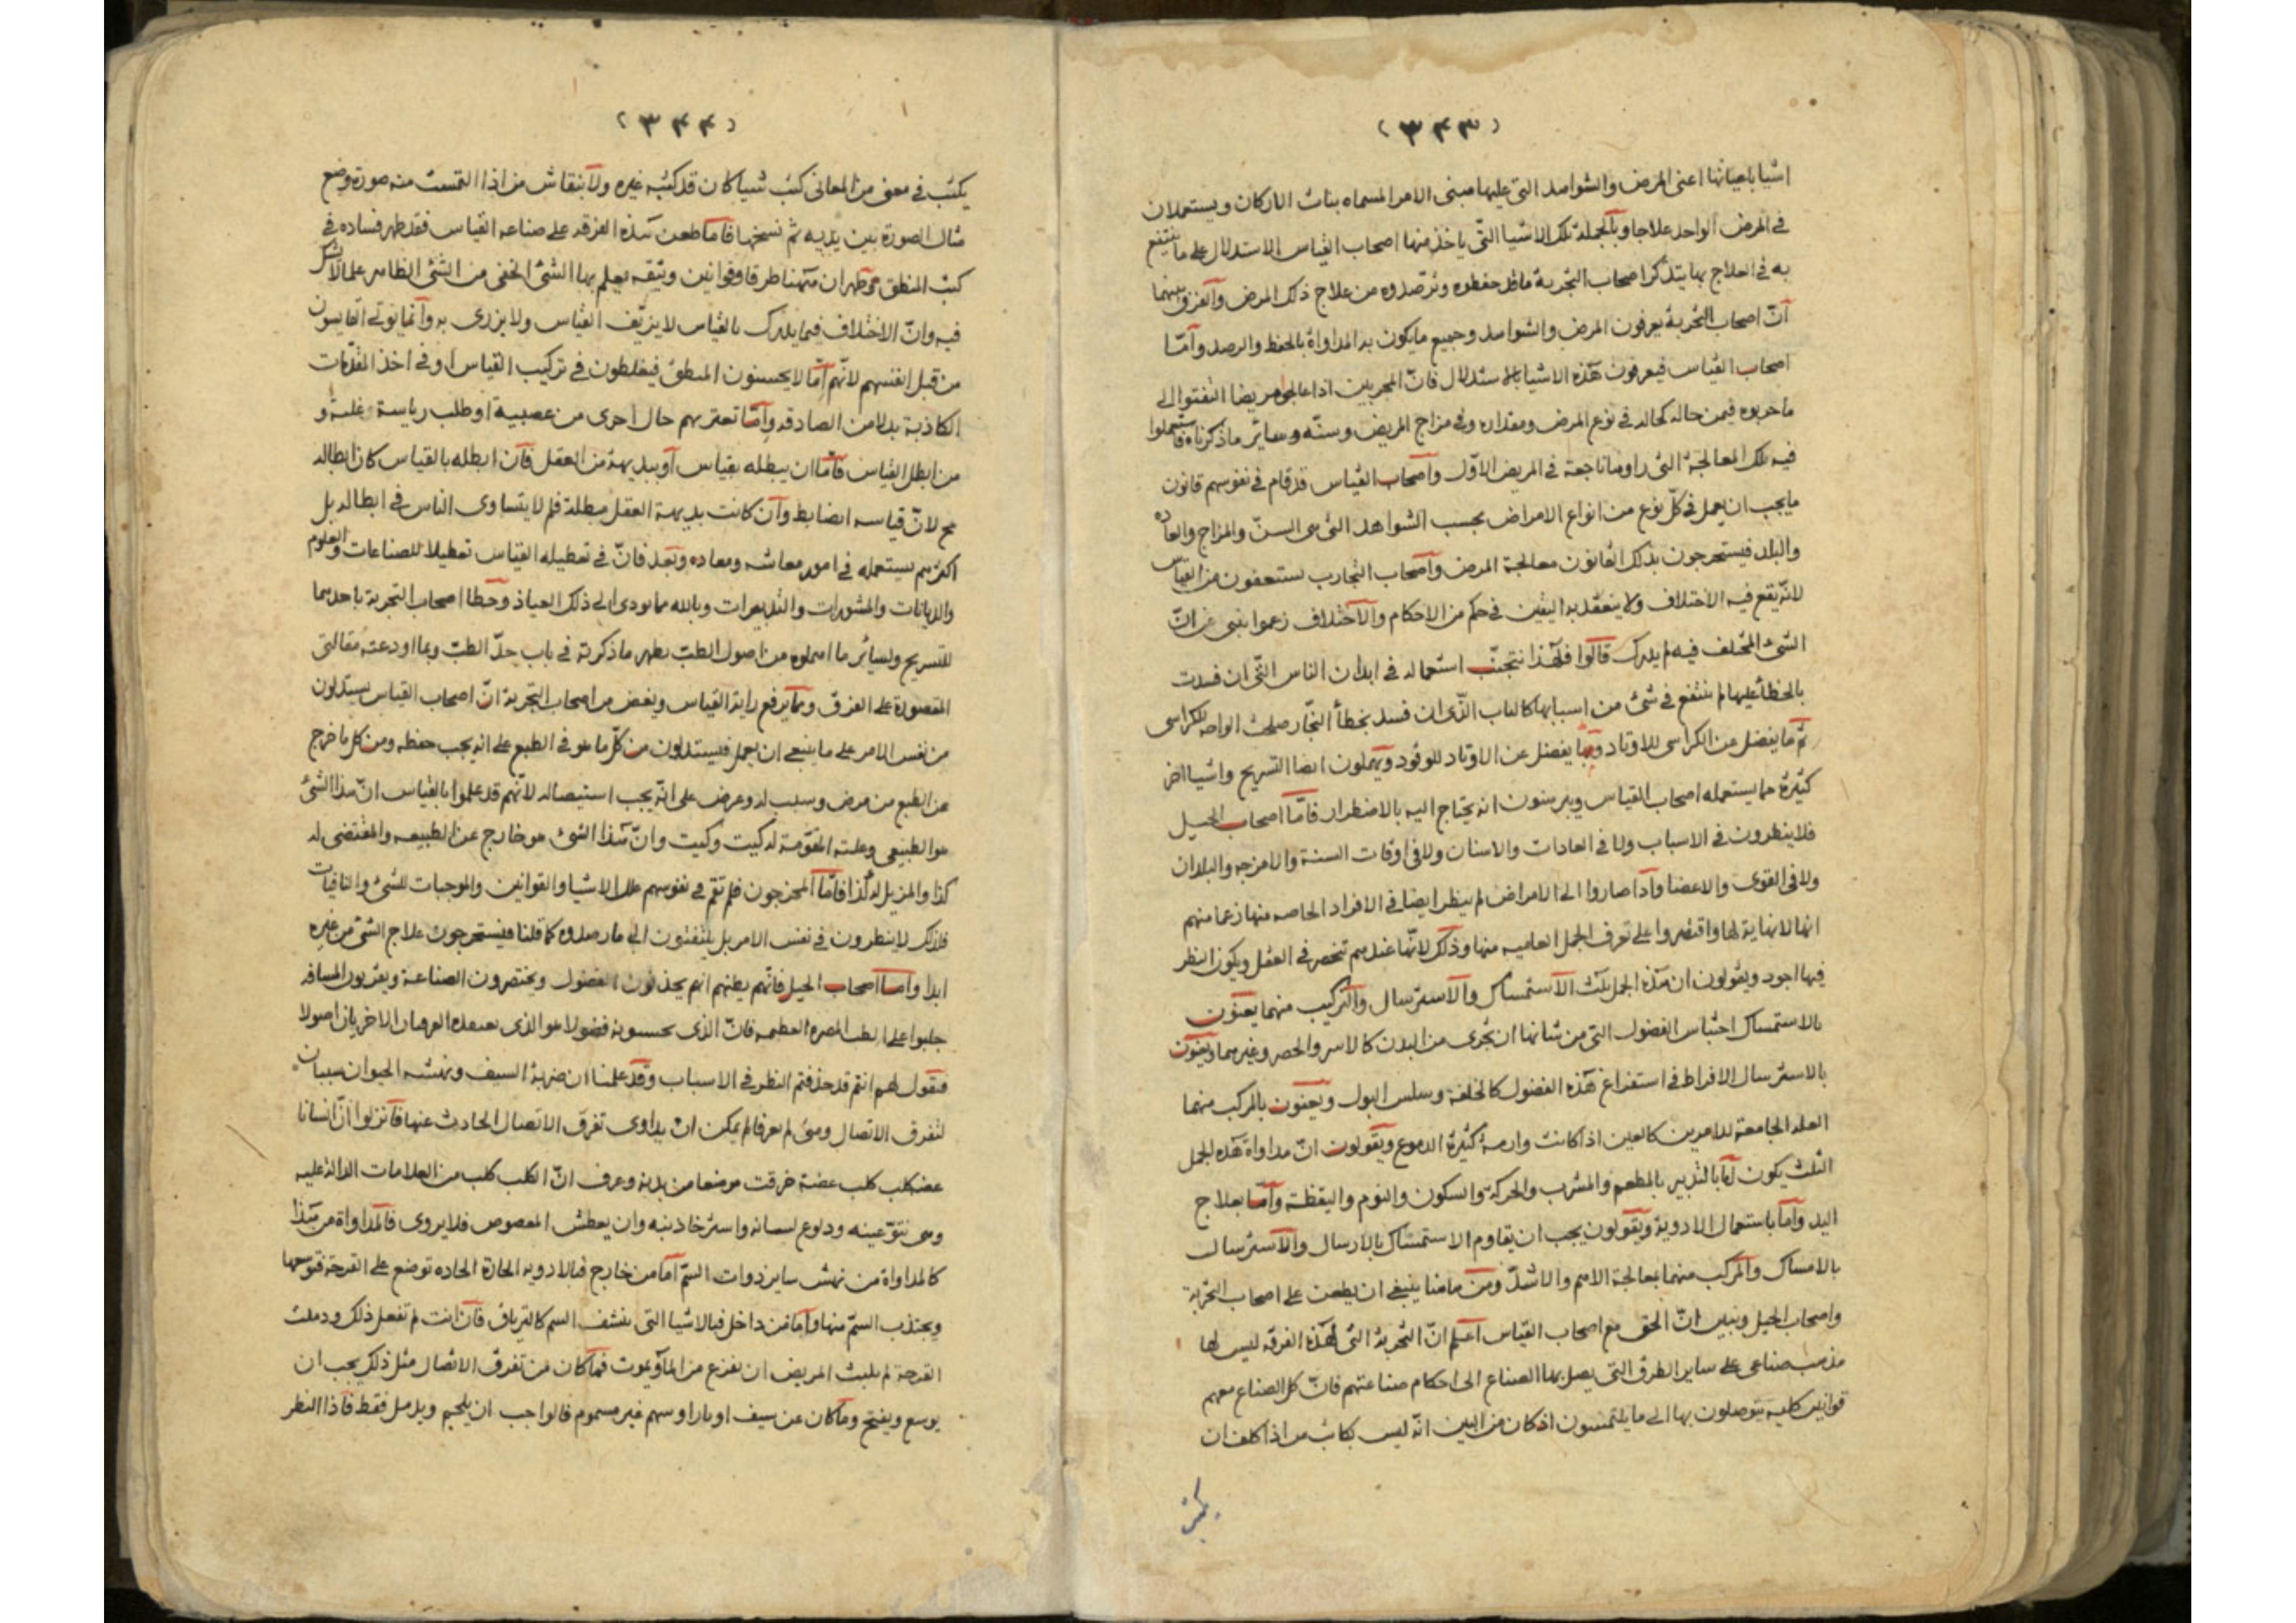 (٣٤٣)
اشيا باعيانها اعنى المرض والشواهد التى عليها مبنى الامر المسماه بنات الاركان ويستعملان
فى المرض الواحد علاجا وبالجملة تلك الاشيا التى ياخذ منها اصحاب القياس الاستدلال على ما ينتفع
به فى العلاج بها يتذكر اصحاب التجربة ما قد حفظوه وترصدوه من علاج ذلك المرض والفرق بينهما
انّ اصحاب التجربة يعرفون المرض والشواهد وجميع ما يكون به المداواة بالحفظ والرصد وأمّا
اصحاب القياس فيعرفون هذه الاشيا بالاستدلال فانّ المجربين اذا عالجوا مريضا التفتوا الى
ما جربوه فيمن حاله كحاله فى نوع المرض ومقداره وفى مزاج المريض وسنّه وسائر ما ذكرناه فاستعملوا
فيه تلك المعالجة التى راوها ناجعة فى المريض الاوّل واصحاب القياس قد قام فى نفوسهم قانون
ما يجب ان يعمل فى كلّ نوع من انواع الامراض بحسب الشواهد التى هى السنّ والمزاج والعاده
والبلد فيستخرجون بذلك القانون معالجة المرض واصحاب التجارب يستعفون من القياس
لانّه يقع فيه الاختلاف ولا ينعقد به اليقين فى حكم من الاحكام والاختلاف زعموا ينبى عن انّ
الشئ المختلف فيه لم يدرك قالوا فلهذا نتجنّب استعماله فى ابدان الناس التى ان فسدت
بالخطأ عليها لم ينتفع فى شئ من اسبابها كالباب الّذى ان فسد بخطأ النجّار صلحت الواحه للكراسى
ثمّ ما يفضل عن الكراسى للاوتاد وما يفضل عن الاوتاد للوقود ويهملون ايضا التشريح واشيا اخر
كثيرة مما يستعمله اصحاب القياس ويبرهنون انه يحتاج اليه بالاضطرار فامّا اصحاب الحيل
فلا ينظرون فى الاسباب ولا فى العادات والاسنان ولا فى اوقات السنة والامزجه والبلدان
ولا فى القوى والاعضا واذا صاروا الى الامراض لم ينظر ايضا فى الافراد الخاصه منها زعما منهم
انها لا نهاية لها واقتصروا على تعرف الجمل العاميه منها وذلك لانّها عندهم تنحصر فى العقل ويكون النظر
فيها اجود ويقولون ان هذه الجمل ثلث الاستمساك والاسترسال والتركيب منهما يعنون
بالاستمساك احتباس الفضول التى من شانها ان تجرى من البدن كالاسر والحصر وغيرهما ويعنون
بالاسترسال الافراط فى استفراغ هذه الفضول كالخلفة وسلس البول ويعنون بالمركب منهما
العله الجامعة للامرين كالعين اذا كانت وارمة كثيرة الدموع ويقولون انّ مداواة هذه الجمل
الثلث يكون امّا بالتدبير بالمطعم والمشرب والحركة والسكون والنوم واليقظة وأمّا بعلاج
اليد وأما باستعمال الادوية ويقولون يجب ان يقاوم الاستمساك بالارسال والاسترسال
بالامساك والمركب منهما بمعالجة الاهم والاشدّ ومن هاهنا ينبغى ان يطعن على اصحاب التجربة
واصحاب الحيل ونبين انّ الحق مع اصحاب القياس اعلم انّ التجربة التى لهذه الفرقه ليس لها
مذهب صناعى على ساير الطرق التى يصل بها الصناع الى احكام صناعتهم فانّ كل الصناع معهم
قوانين كلية يتوصلون بها الى ما يلتمسون اذ كان من البين انّه ليس بكاتب من اذا كلف ان
يكتب
(٣٤٤)
يكتب فى معنى من المعانى كتب شيا كان قد كتبه غيره ولا بنقاش من اذا التمست منه صورة وضع
مثال الصورة بين يديه ثم نسخها فاما طعن هذه الفرقه على صناعه القياس فقد ظهر فساده فى
كتب المنطق وظهر ان ههنا طرقا وقوانين وثيقه يعلم بها الشئ الخفى من الشئ الظاهر علما لا شك
فيه وانّ الاختلاف فيما يدرك بالقياس لا يزيّف القياس ولا يزرى به وانما يوتى القايسون
من قبل انفسهم لانّهم امّا لا يحسنون المنطق فيغلطون فى تركيب القياس او فى اخذ المقدّمات
الكاذبة بدلا من الصادقه وأمّا تعتريهم حال اخرى من عصبية او طلب رياسة وغلبة و
من ابطل القياس فأمّا ان يبطله بقياس او ببديهة من العقل فان ابطله بالقياس كان ابطاله
مح لانّ قياسه ايضا يبط وان كانت بديهة العقل مبطلة فلم لا يتساوى الناس فى ابطاله بل
اكثرهم يستعمله فى امور معاشه ومعاده وبعد فانّ فى تعطيله القياس تعطيلا للصناعات والعلوم
والديانات والمشورات والتدبيرات وبالله مما يودى الى ذلك العياذ وخطا اصحاب التجربة باحدهما
للتشريح ولسائر ما اهملوه من اصول الطب يظهر ما ذكرته فى باب حدّ الطب وبما اودعته مقالتى
المقصورة على الفرق ومما يرفع راية القياس ويغض من اصحاب التجربة انّ اصحاب القياس يستدلون
من نفس الامر على ما ينبغى ان يعمل فيستدلون من كلّ ما هو فى الطبع على انه يجب حفظه ومن كل ما خرج
عن الطبع من مرض وسبب له وعرض على انّه يجب استيصاله لانّهم قد علموا بالقياس انّ هذا الشئ
هو الطبيعى وعلته المقوّمة له كيت وكيت وانّ هذا الشئ هو خارج عن الطبيعه والمقتضى له
كذا والمزيل له كذا فامّا المخرجون فلم تقم فى نفوسهم علل الاشيا والقوانين والموجبات للشئ والنافيات
فلذلك لا ينظرون فى نفس الامر بل يلتفتون الى ما رصدوه كما قلنا فيستخرجون علاج الشئ من غيره
ابدا وأما اصحاب الحيل فانّهم بظنهم انهم يحذفون الفضول ويختصرون الصناعة ويقربون المسافه
جلبوا على الطب المضره العظيمه فانّ الذى يحسبونه فضولا هو الذى يعتقده الفرقتان الاخريان اصولا
فنقول لهم انتم قد حذفتم النظر فى الاسباب وقد علمنا ان ضربة السيف ونهشه الحيوان سببان
لتفرق الاتصال ومتى لم يعرفا لم يمكن ان يداوى تفرق الاتصال الحادث عنها فانزلوا انّ انسانا
عضه كلب كلب عضة خرقت موضعا من بدنه وعرف انّ الكلب كلب من العلامات الدالة عليه
وهى نتوّ عينه ودلوع لسانه واسترخا ذنبه وان يعطش المعضوض فلا يروى فالمداواة من هذا
كالمداواة من نهش ساير ذوات السمّ اما من خارج فبالادويه الحارة الحاده توضع على القرحة فتوسعها
ويجتذب السمّ منها واما من داخل فبالاشيا التى ينشف السم كالترياق فان انت لم تفعل ذلك ودملت
القرحة لم يلبث المريض ان يفزع من الما ويموت فما كان من تفرق الاتصال مثل ذلك يجب ان
يوسع ويفتح وما كان عن سيف او نار او سهم غير مسموم فالواجب ان يلحم ويدمل فقط فاذا النظر